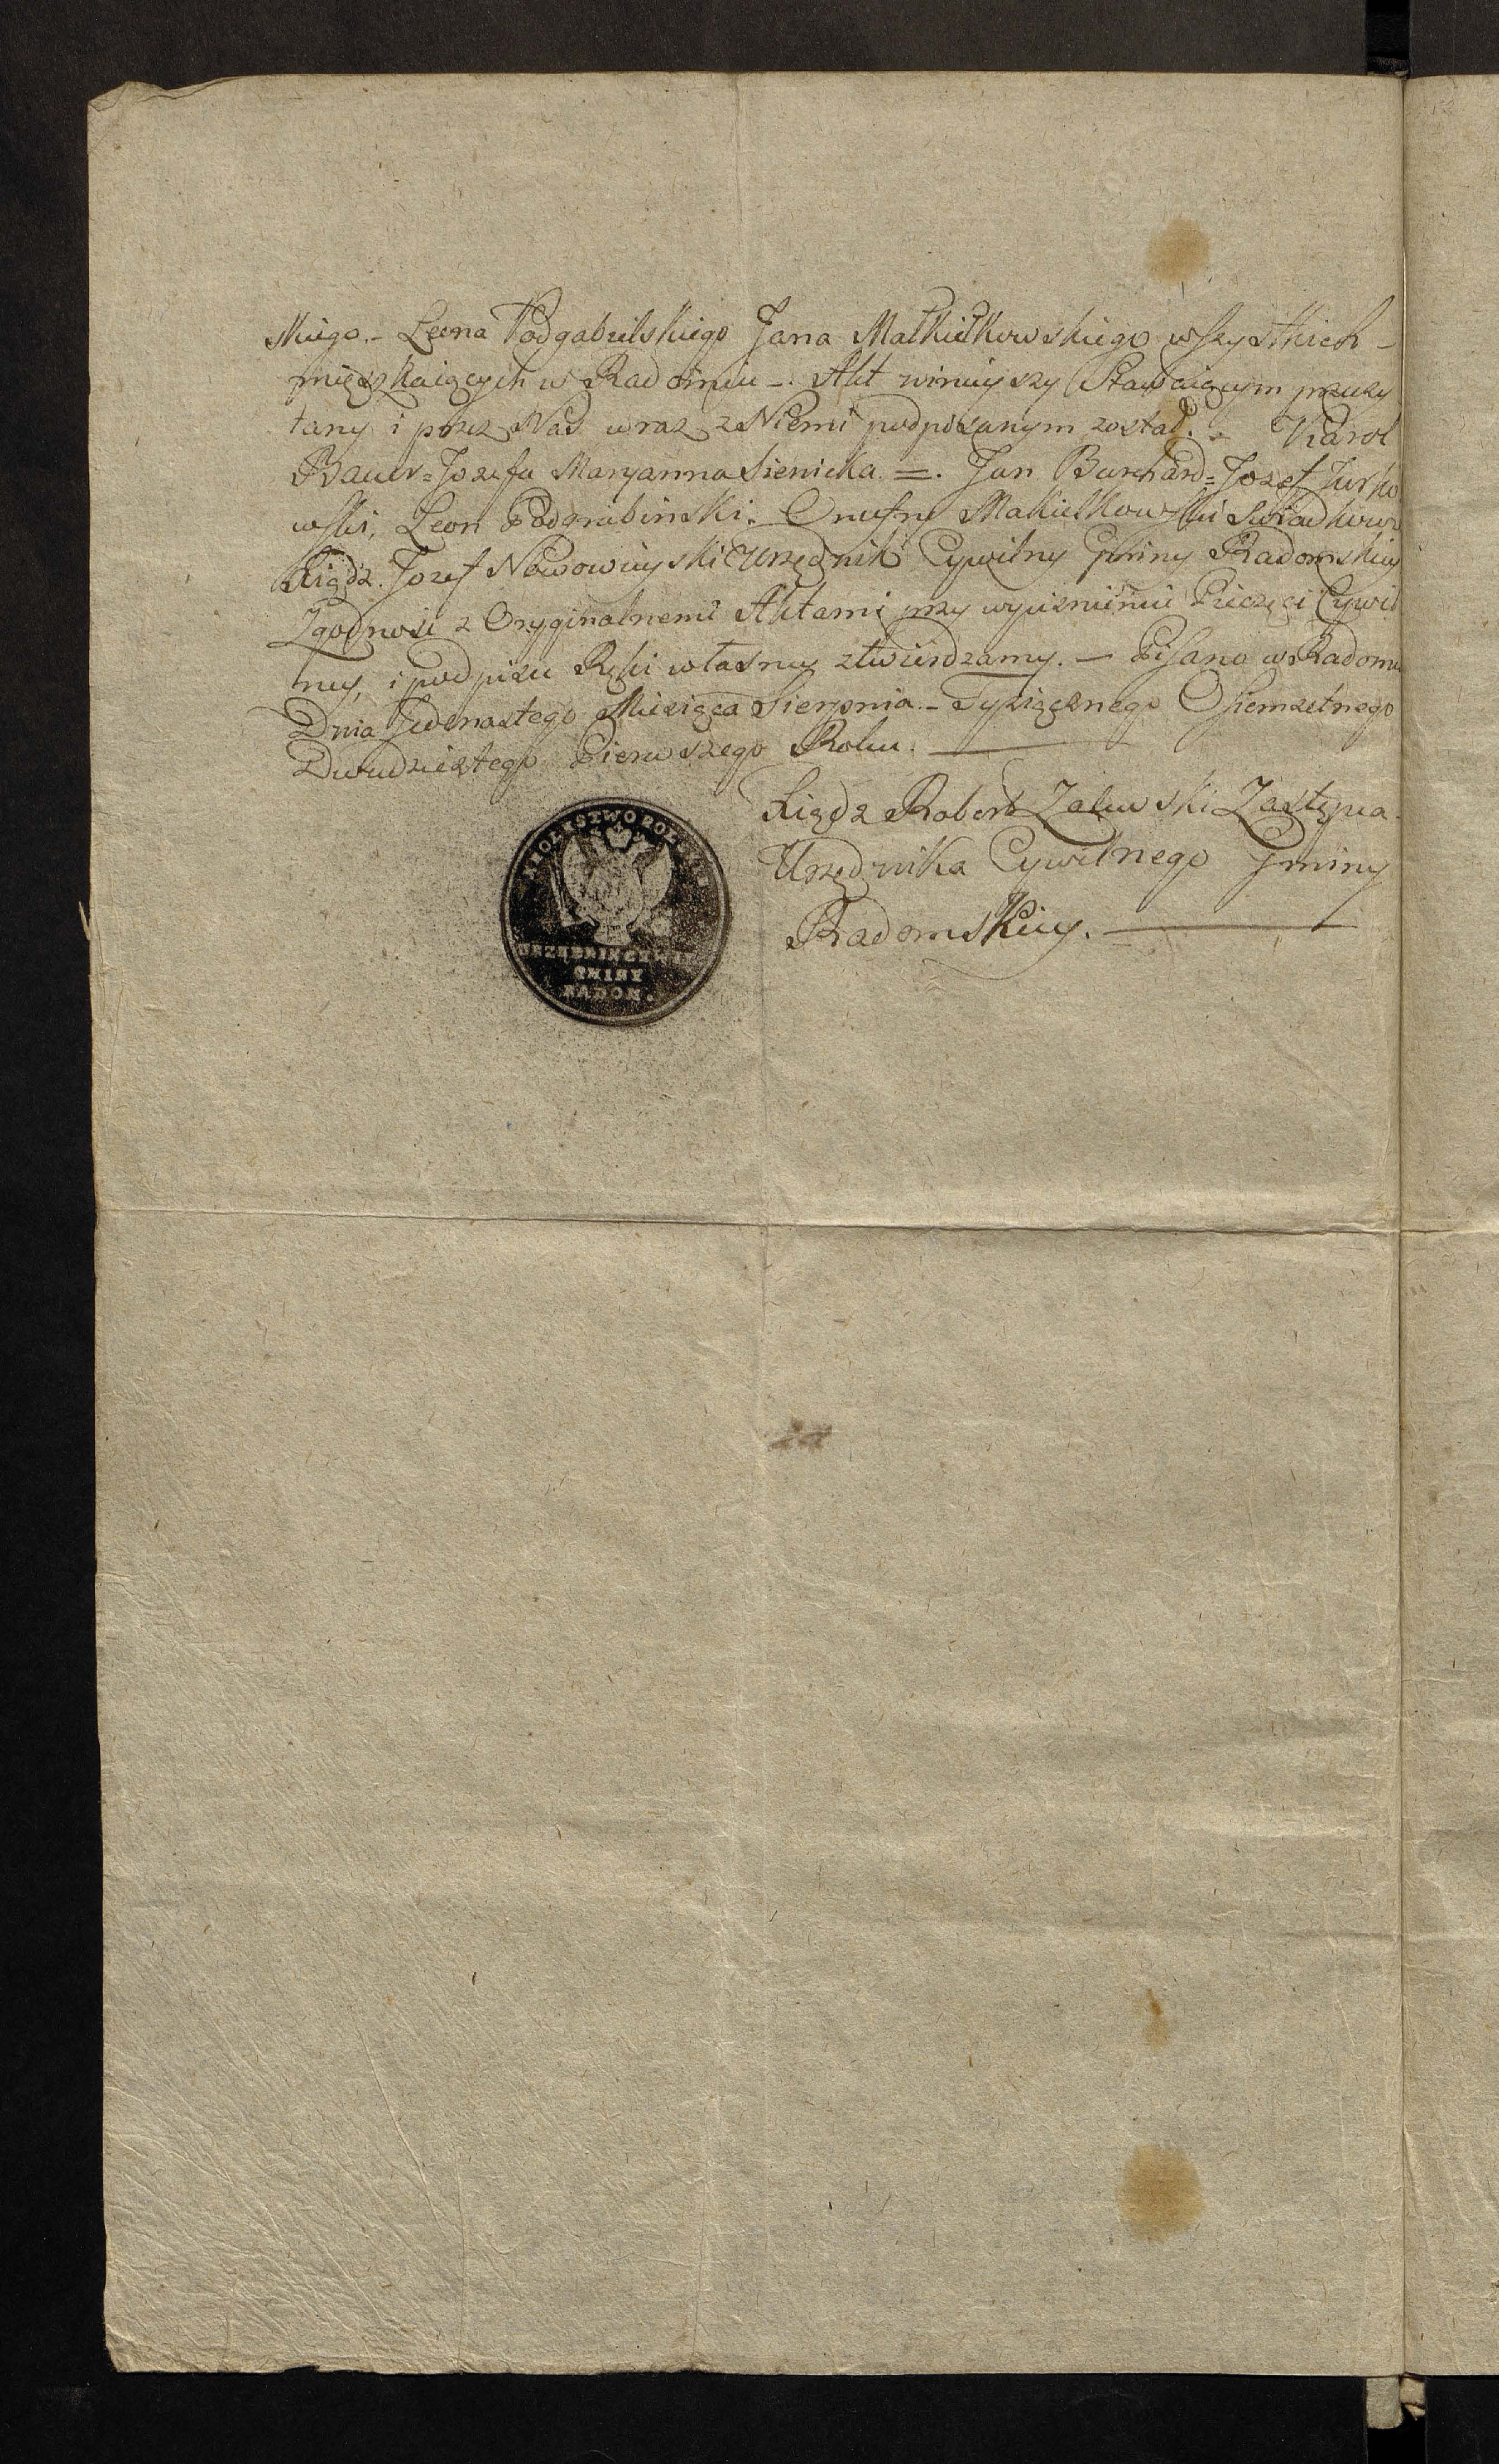 skiego.- Leona Podgabielskiego Jana Małkiełkowskiego wszystkich -
mięszkaiących w Radomiu -. Akt ninieyszy Stawaiącym przeczy
tany i przez Nas wraz z Niemi podpisanym został. - Karol
Bauer = Jozefa Maryanna Sienicka. =. Jan Burchard = Jozef Jurko
wski, Leon Podgrabinski. - Onufry Makiełkowski Swiadkowie
Xiądz. Jozef Nowowieyski Urzędnik Cywilny Gminy Radomskiey
Zgodność z Oryginalnemi Aktami przy wycisnieniu Pieczęci Cywil
ney, i podpisu Ręki własney ztwierdzamy. - Pisano w Radomiu
Dnia Jedenastego Miesiąca Sierpnia. - Tysiącznego Osiemsetnego
Dwudziestego Pierwszego Roku.
Xiądz Robert Zaluwski Zastępca
Urzędnika Cywilnego Gminy
Radomskiey.
KROLESTWO POLSKIE
URZĘDNIK CYWIL
GMINY
RADOM.